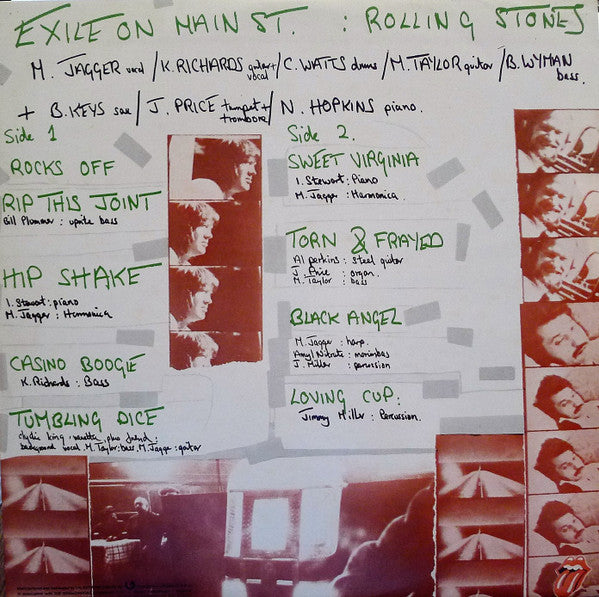 EXILE ON MAIN ST. : ROLLING STONES
M. JAGGER vocal / K. RICHARDS guitar + vocal / C. WATTS drums / M. TAYLOR guitar / B. WYMAN bass.
+ B. KEYS sax / J. PRICE trumpet + trombone / N. HOPKINS piano.
Side 1
ROCKS OFF
RIP THIS JOINT
Bill Plummer : uprite bass
HIP SHAKE
I. Stewart : piano
M. Jagger : Harmonica
CASINO BOOGIE
K. Richards : Bass
TUMBLING DICE
clydie king, vanetta, plus friend :
background vocal. M. Taylor: bass, M. Jagger : guitar
Side 2.
SWEET VIRGINIA
I. Stewart : Piano
M. Jagger : Harmonica.
TORN & FRAYED
Al perkins : steel guitar
J. Price : organ.
M. Taylor : bass
BLACK ANGEL
M. Jagger : harp
Amyl Nitrate : marimbas
J. Miller : percussion
LOVING CUP :
Jimmy Miller : Percussion.